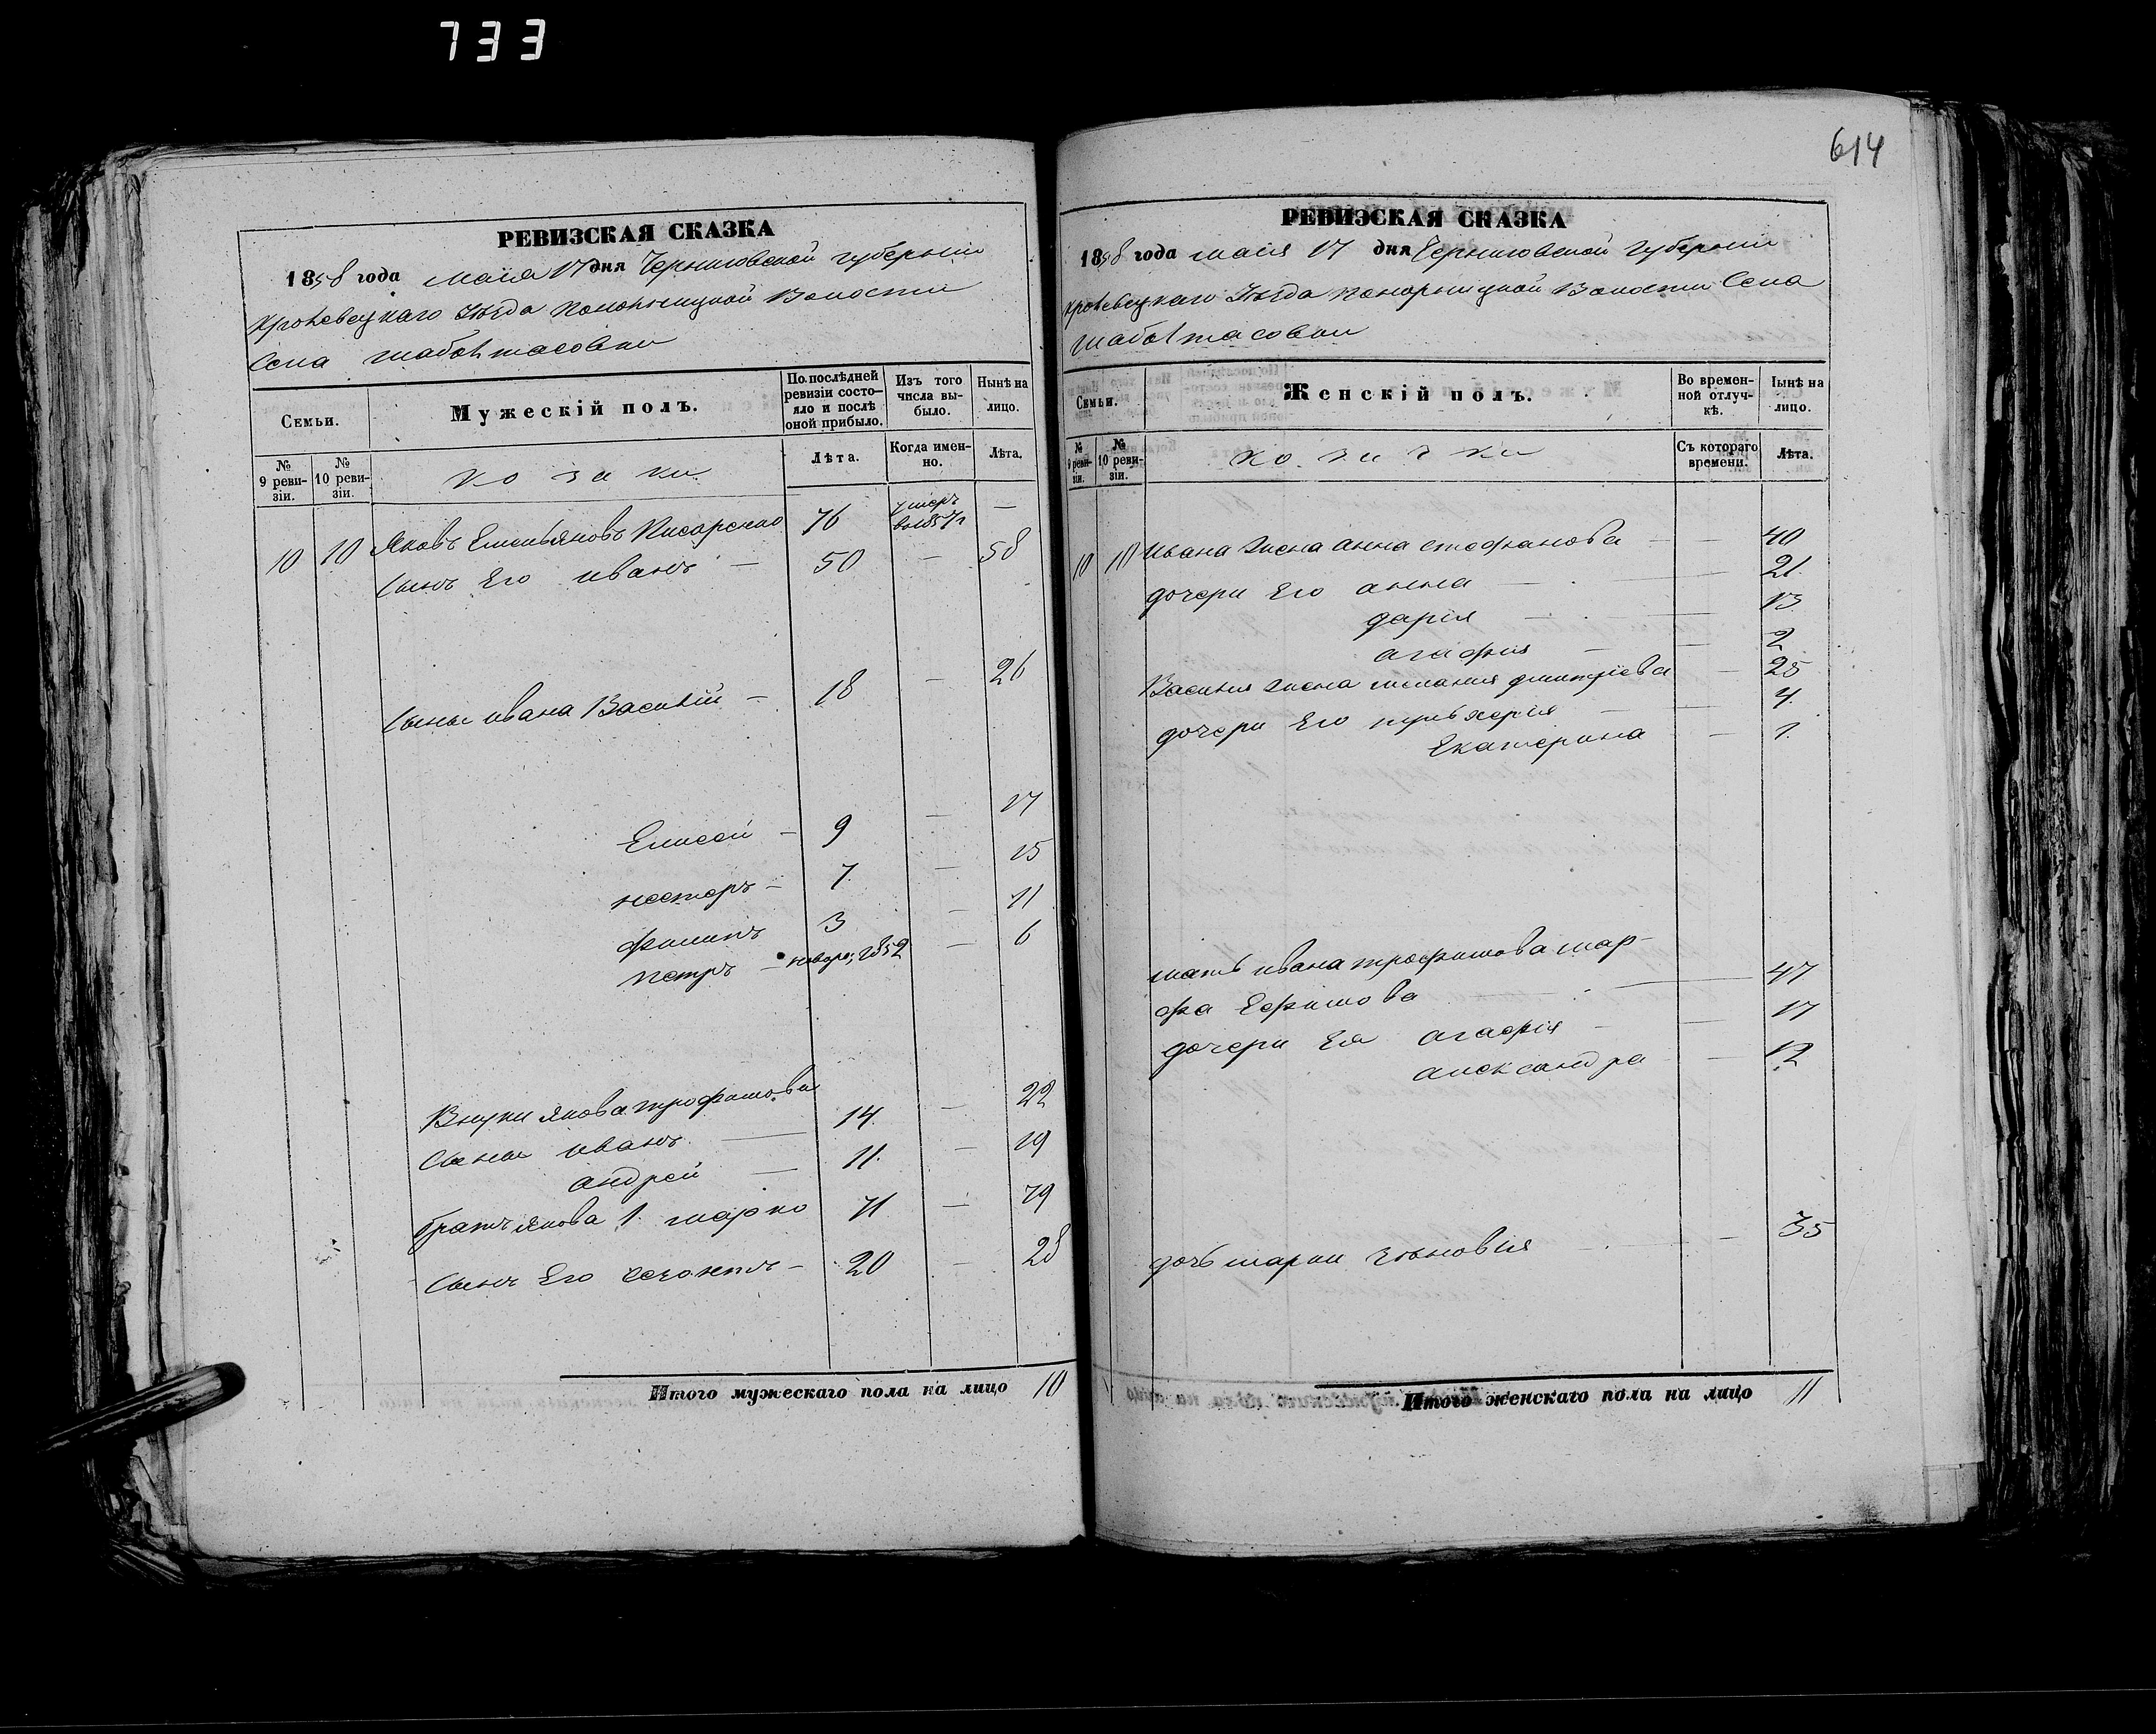 733
614
РЕВИЗСКАЯ СКАЗКА
1858 года маія 17 дня Черниговской губерніи
Кролевецкаго Уѣзда Понорницкой Волости
Села Шаболтасовки
Семьи.
Мужескій полъ.
По послѣдней ревизіи состо-
яло и послѣ
оной прибыло.
Изъ того
числа вы-
было.
Нынѣ на
лицо.
№ 9 реви-
зіи.
№ 10 реви-
зіи.
козаки
Лѣта.
Когда имен-
но.
Лѣта.
10 10 Яковъ Емельяновъ 76 умеръ —
Сынъ Его иванъ — 50 — 58
Сыны ивана Василій — 18 — 26
Елисей — 9 — 17
несторъ — 7 — 15
филипъ 3 — 11
петръ — новоро; 1852 — 6
Внуки якова трофимова
Сыны иванъ — 14 — 22
андрей — 11 — 19
братъ якова 1. марко 71 — 79
Сынъ Его — 20 — 28
Итого мужескаго пола на лицо 10
РЕВИЗСКАЯ СКАЗКА
1858 года маія 17 дня Черниговской губерніи
Кролевецкаго Уѣзда Понорницкой Волости Села
Шаболтасовки
Семьи.
Женскій полъ.
Во времен-
ной отлуч-
кѣ.
Нынѣ на
лицо.
№ 9 реви-
зіи.
№ 10 реви-
зіи.
козачки
Съ котораго
времени.
Лѣта.
10 10 ивана жена анна стефанова — — 40
дочери Его анна — — 21
дарія — — 13
агафія — — 2
Василія жена меланія дмитріева — 25
дочери Его пульхерія — — 4
Екатерина — 1
мать ивана трофимова мар-
фа Ефимова — 47
дочери Ея агафія — — 17
александра — 12
дочь марки зѣновія — — 35
Итого женскаго пола на лицо 11